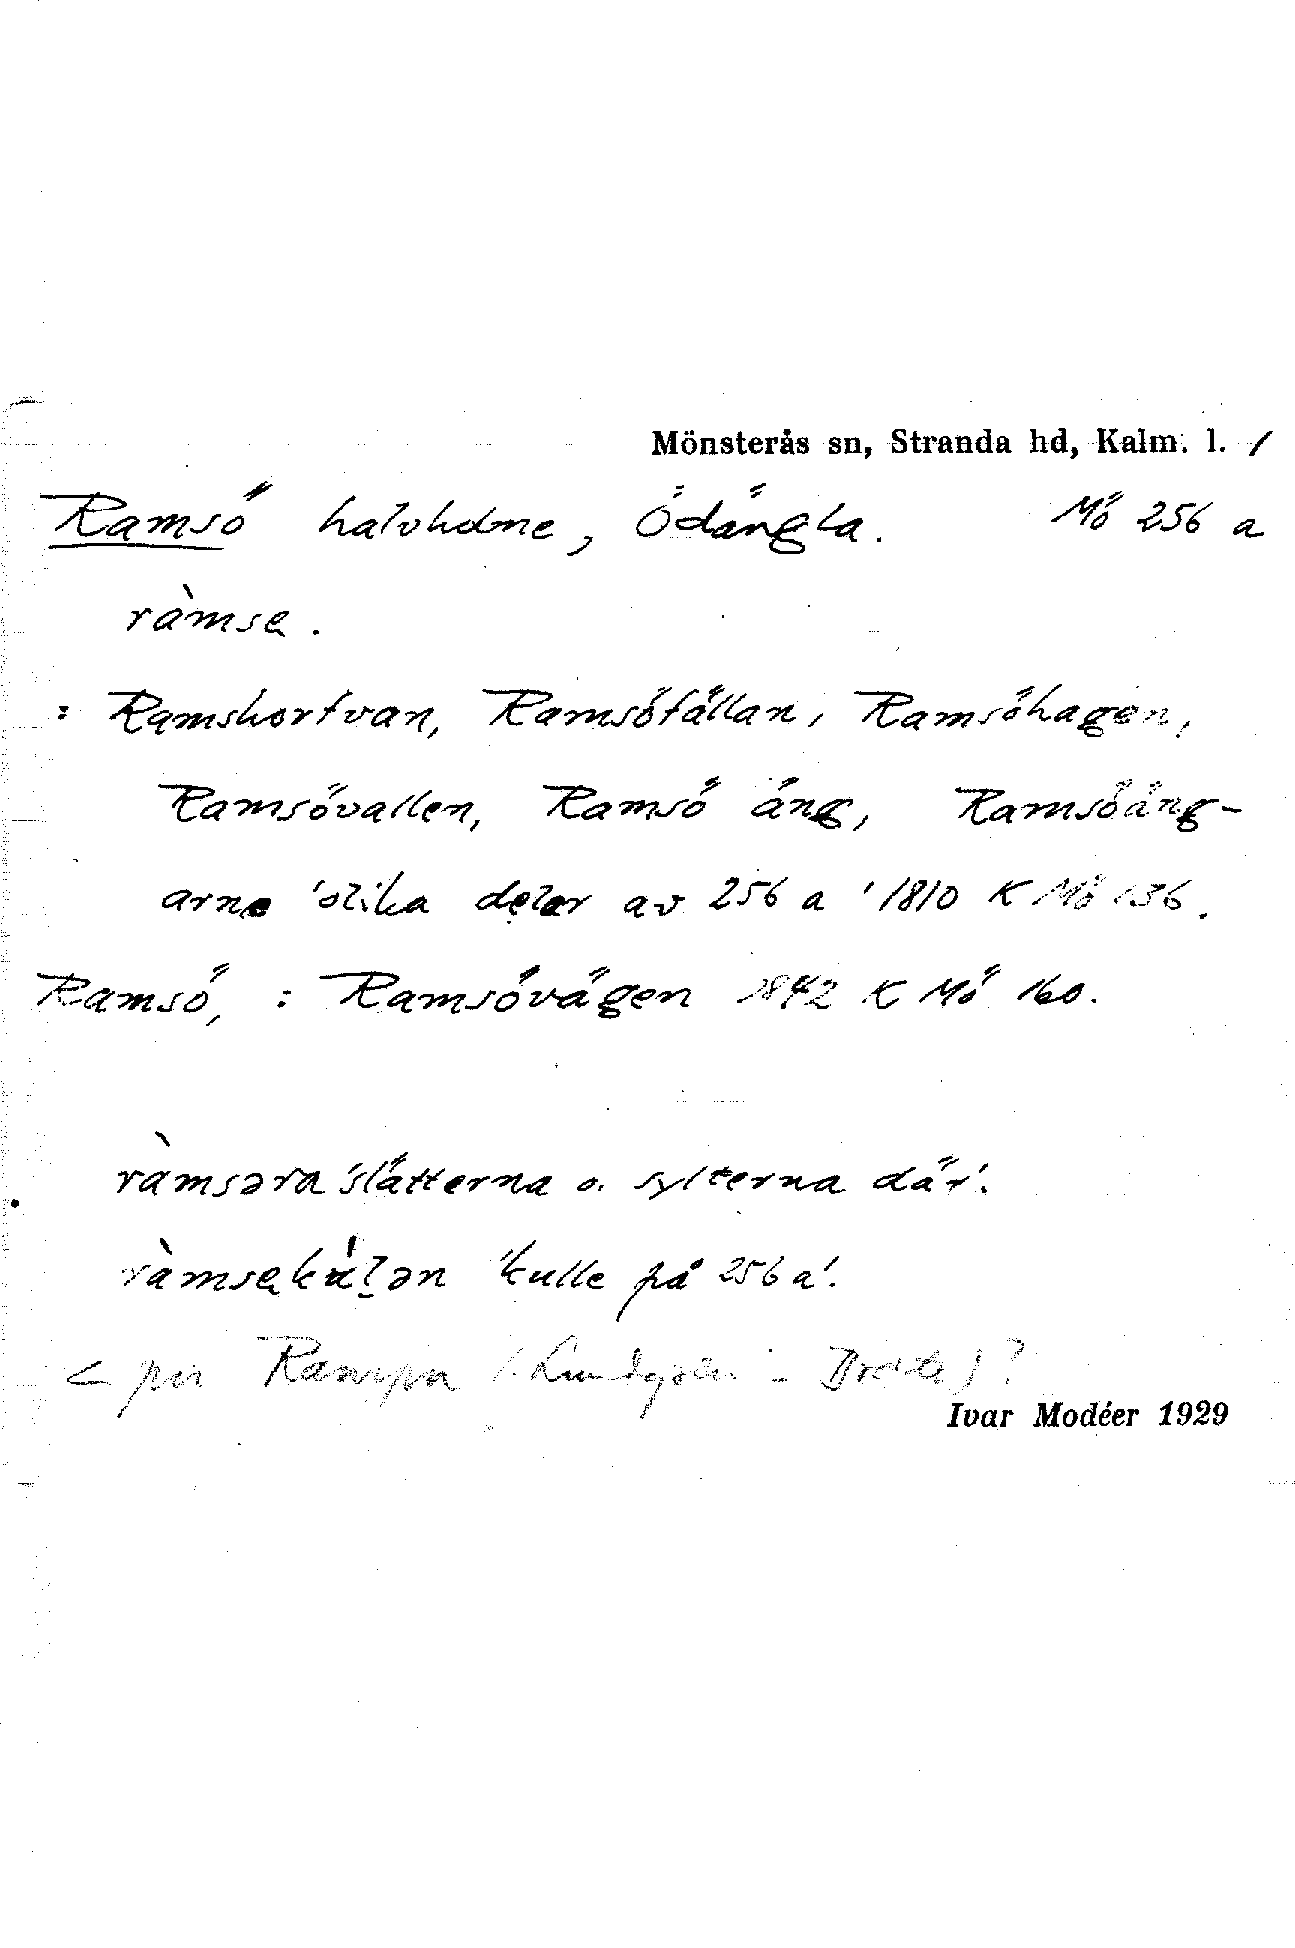 Mönsterås sn, Stranda hd, Kalm. l. /
Ramsö halvholme, Ödängla. Mö 256 a
ràmse.
: Ramshorfvan, Ramsöfällan, Ramsöhagen,
Ramsövallen, Ramsö äng, Ramsöäng-
arne 'olika delar av 256 a' 1810 K Mö 136.
Ramsö, : Ramsövägen 1842 K Mö 160.
ràmsəra 'slåtterna o. sylterna där'.
ràmsekúlən 'kulle på 256 a'.
< pn ?
Ivar Modéer 1929